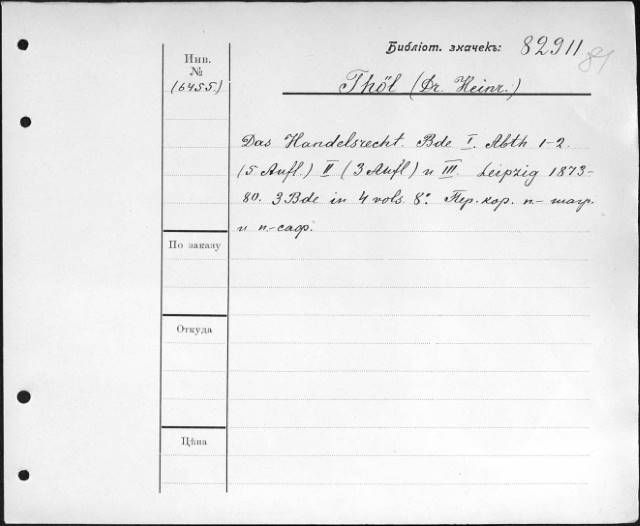 Библіот. значекъ: 82911
81
Инв.
№
(6455.)
Thöl (Dr. Heinr.)
Das Handelsrecht. Bde I. Abth 1-2.
(5 Aufl.) II (3 Aufl) u III. Leipzig 1873-
80. 3 Bde in 4 vols. 8º. Пер. кор. п.- шагр.
и п.-саф.
По заказу
Откуда
Цѣна